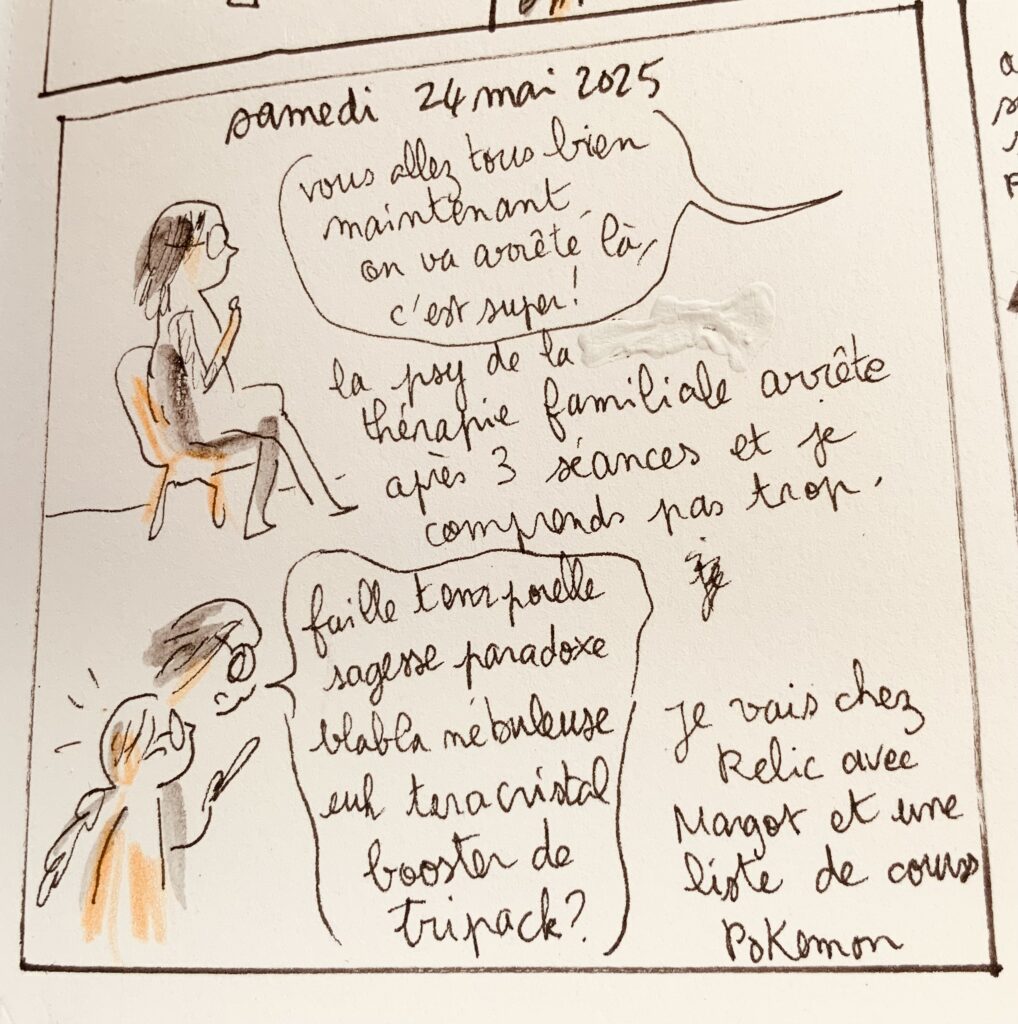 samedi 24 mai 2025
vous allez tous bien
maintenant,
on va arrêté là,
c'est super!
la psy de la
thérapie familiale arrête
après 3 séances et je
comprends pas trop.
faille temporelle
sagesse paradoxe
blabla nébuleuse
euh teracristal
booster de
tripack?
Je vais chez
Relic avec
Margot et une
liste de cours
Pokemon